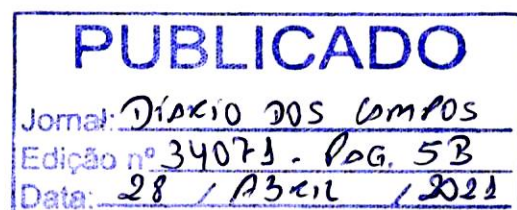 PUBLICADO
Jornal: DIÁRIO DOS CAMPOS
Edição nº 34071 - PAG. 5B
Data: 28 / ABRIL / 2021